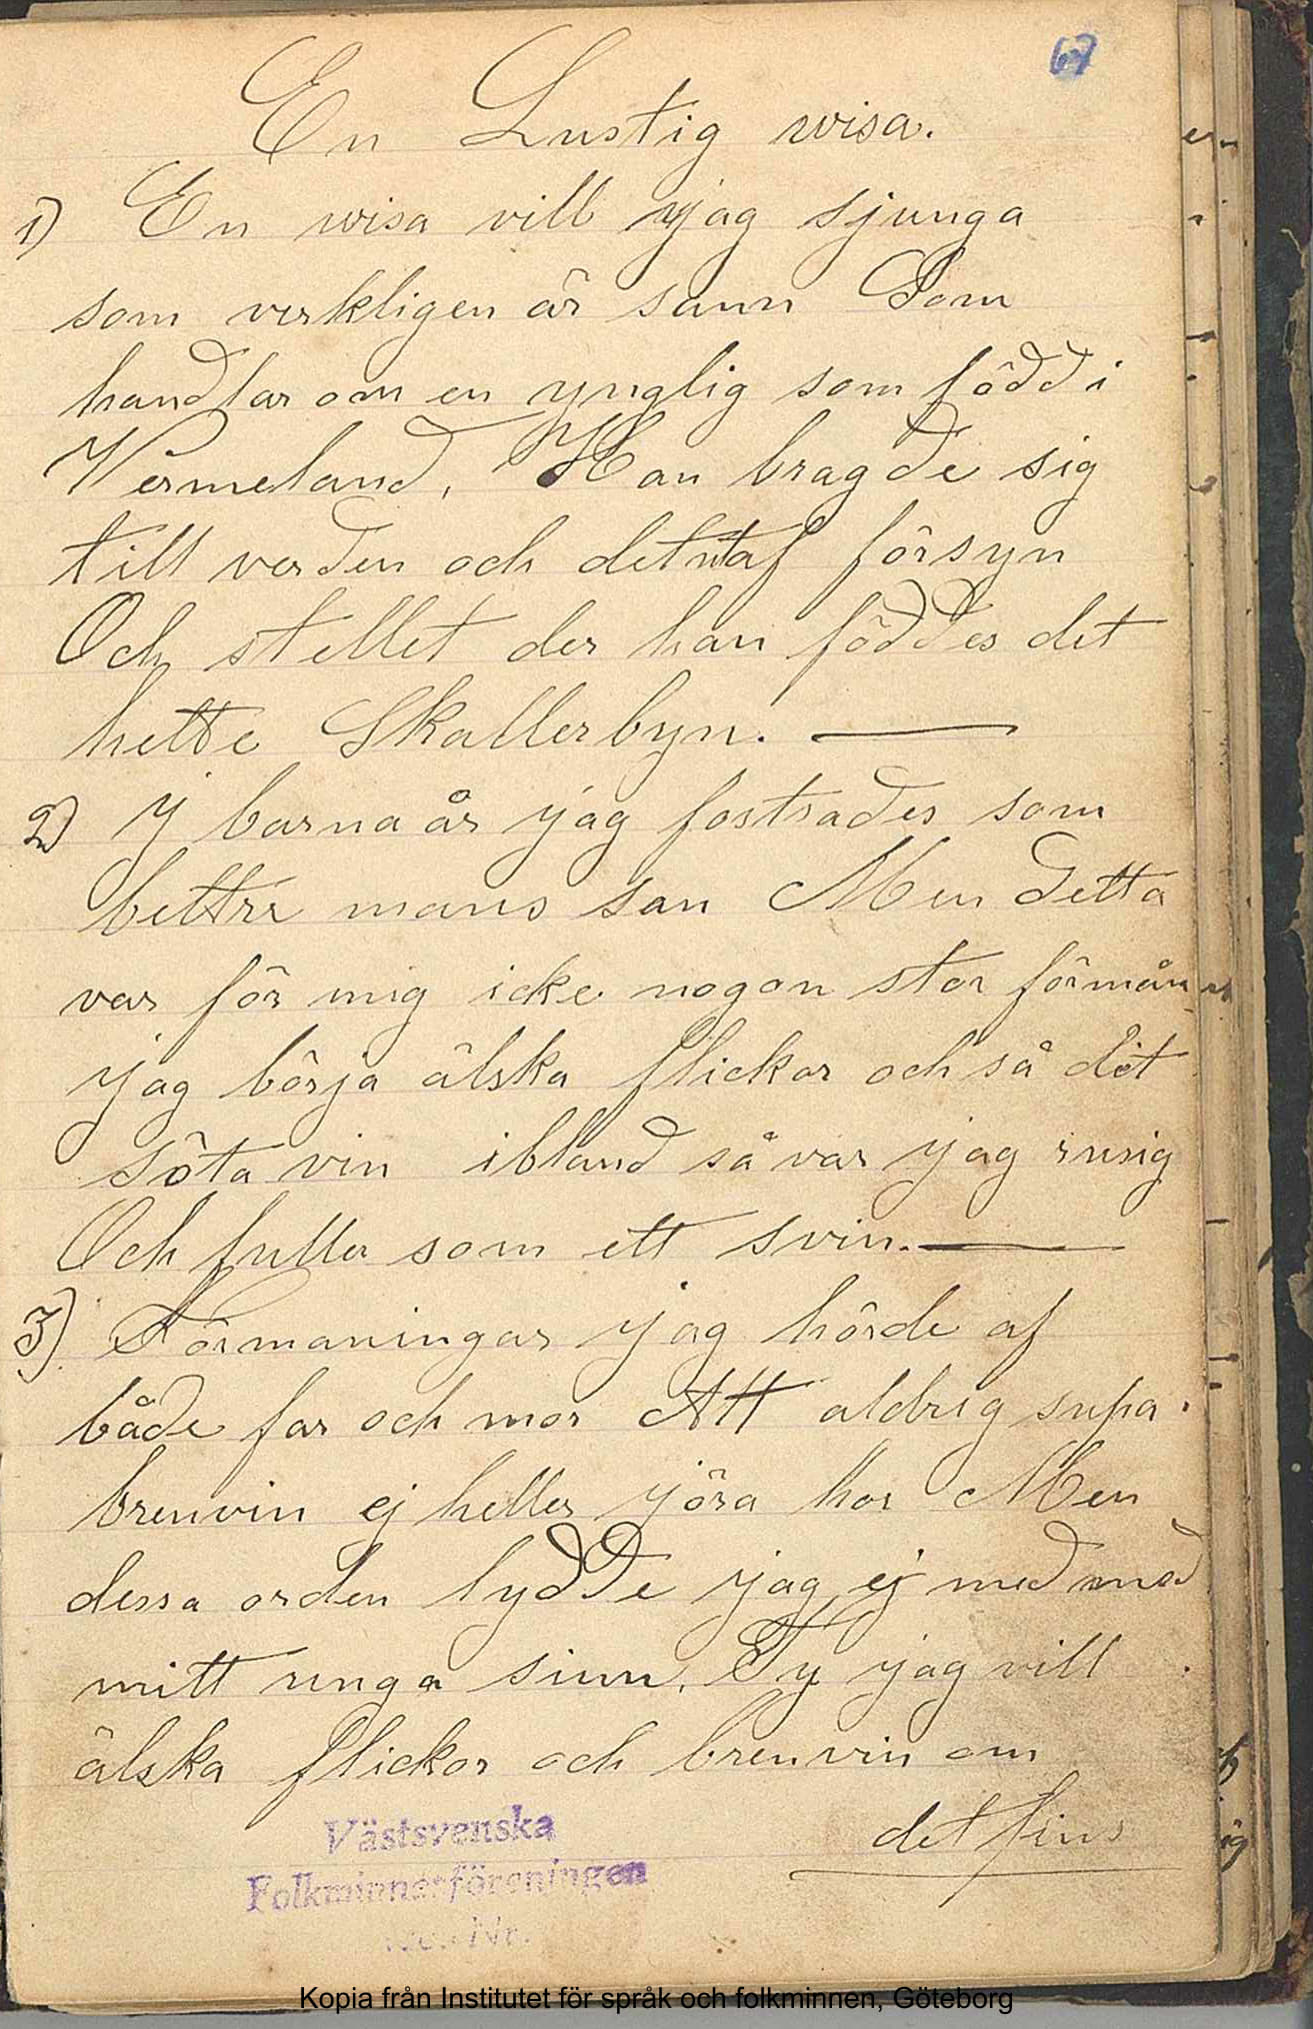 67
En Lustig wisa.
1) En wisa vill jag sjunga
som verkligen är sann Som
handlar om en ynglig som född i
Vermeland. Han bragde sig
till verden och det af försyn
Och stellet der han föddes det
hette Skallerbyn.
2) J barna år jag fostrades som
bettre mans san Men detta
var för mig icke nogon stor förmån
jag börja älska flickor och så det
söta vin ibland så var jag rusig
Och fuller som ett svin.
3) Förmaningar jag hörde af
både far och mor Att aldrig supa
brenvin ej heller jöra hor Men
dessa orden lydde jag ej med
mitt unga sinn. Ty jag vill
älska flickor och brenvin om
det fins
Västsvenska
Folkminnesföreningen
Nr.
Kopia från Institutet för språk och folkminnen, Göteborg